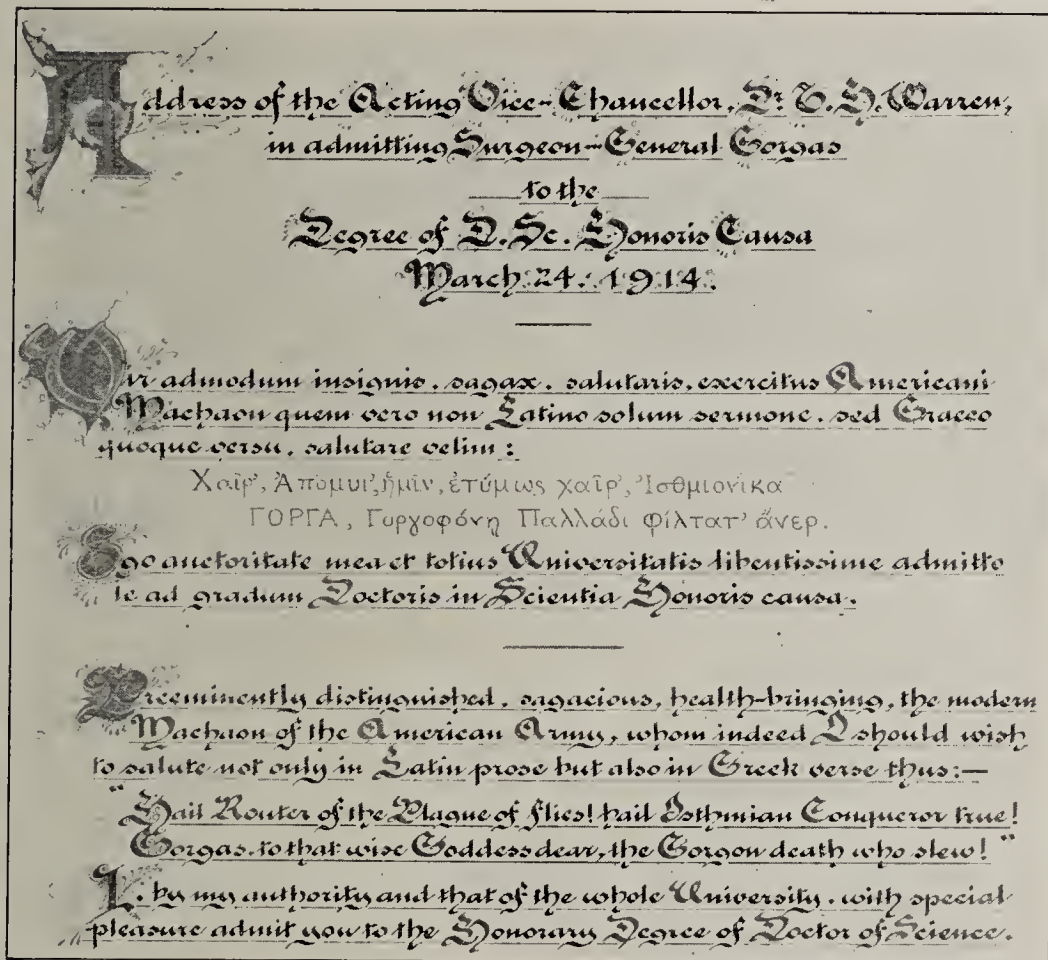 Address of the Acting Vice-Chancellor, Dr T. H. Warren,
in admitting Surgeon-General Gorgas
to the
Degree of D. Sc. Honoris Causa
March 24. 1914.
Vir admodum insignis, sagax, salutaris, exercitus Americani
Machaon quem vero non Latino solum sermone, sed Graeco
quoque versu, salutare velim:
Χαῖρ', Ἀπόμυι', ἡμῖν, ἐτύμως χαῖρ', Ἰσθμιονίκα
ΓΟΡΓΑ, Γοργοφόνῃ Παλλάδι φίλτατ' ἄνερ.
Ego auctoritate mea et totius Universitatis libentissime admitto
te ad gradum Doctoris in Scientia Honoris causa.
Preeminently distinguished, sagacious, health-bringing, the modern
Machaon of the American Army, whom indeed I should wish
to salute not only in Latin prose but also in Greek verse thus:—
"Hail Router of the Plague of flies! hail Isthmian Conqueror true!
Gorgas, to that wise Goddess dear, the Gorgon death who slew!"
I, by my authority and that of the whole University, with special
pleasure admit you to the Honorary Degree of Doctor of Science.